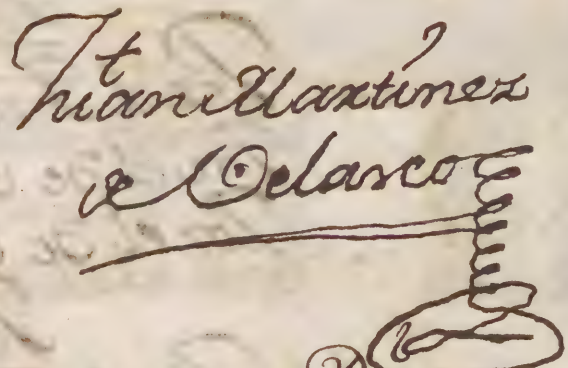 Juan Martínez
de Velasco